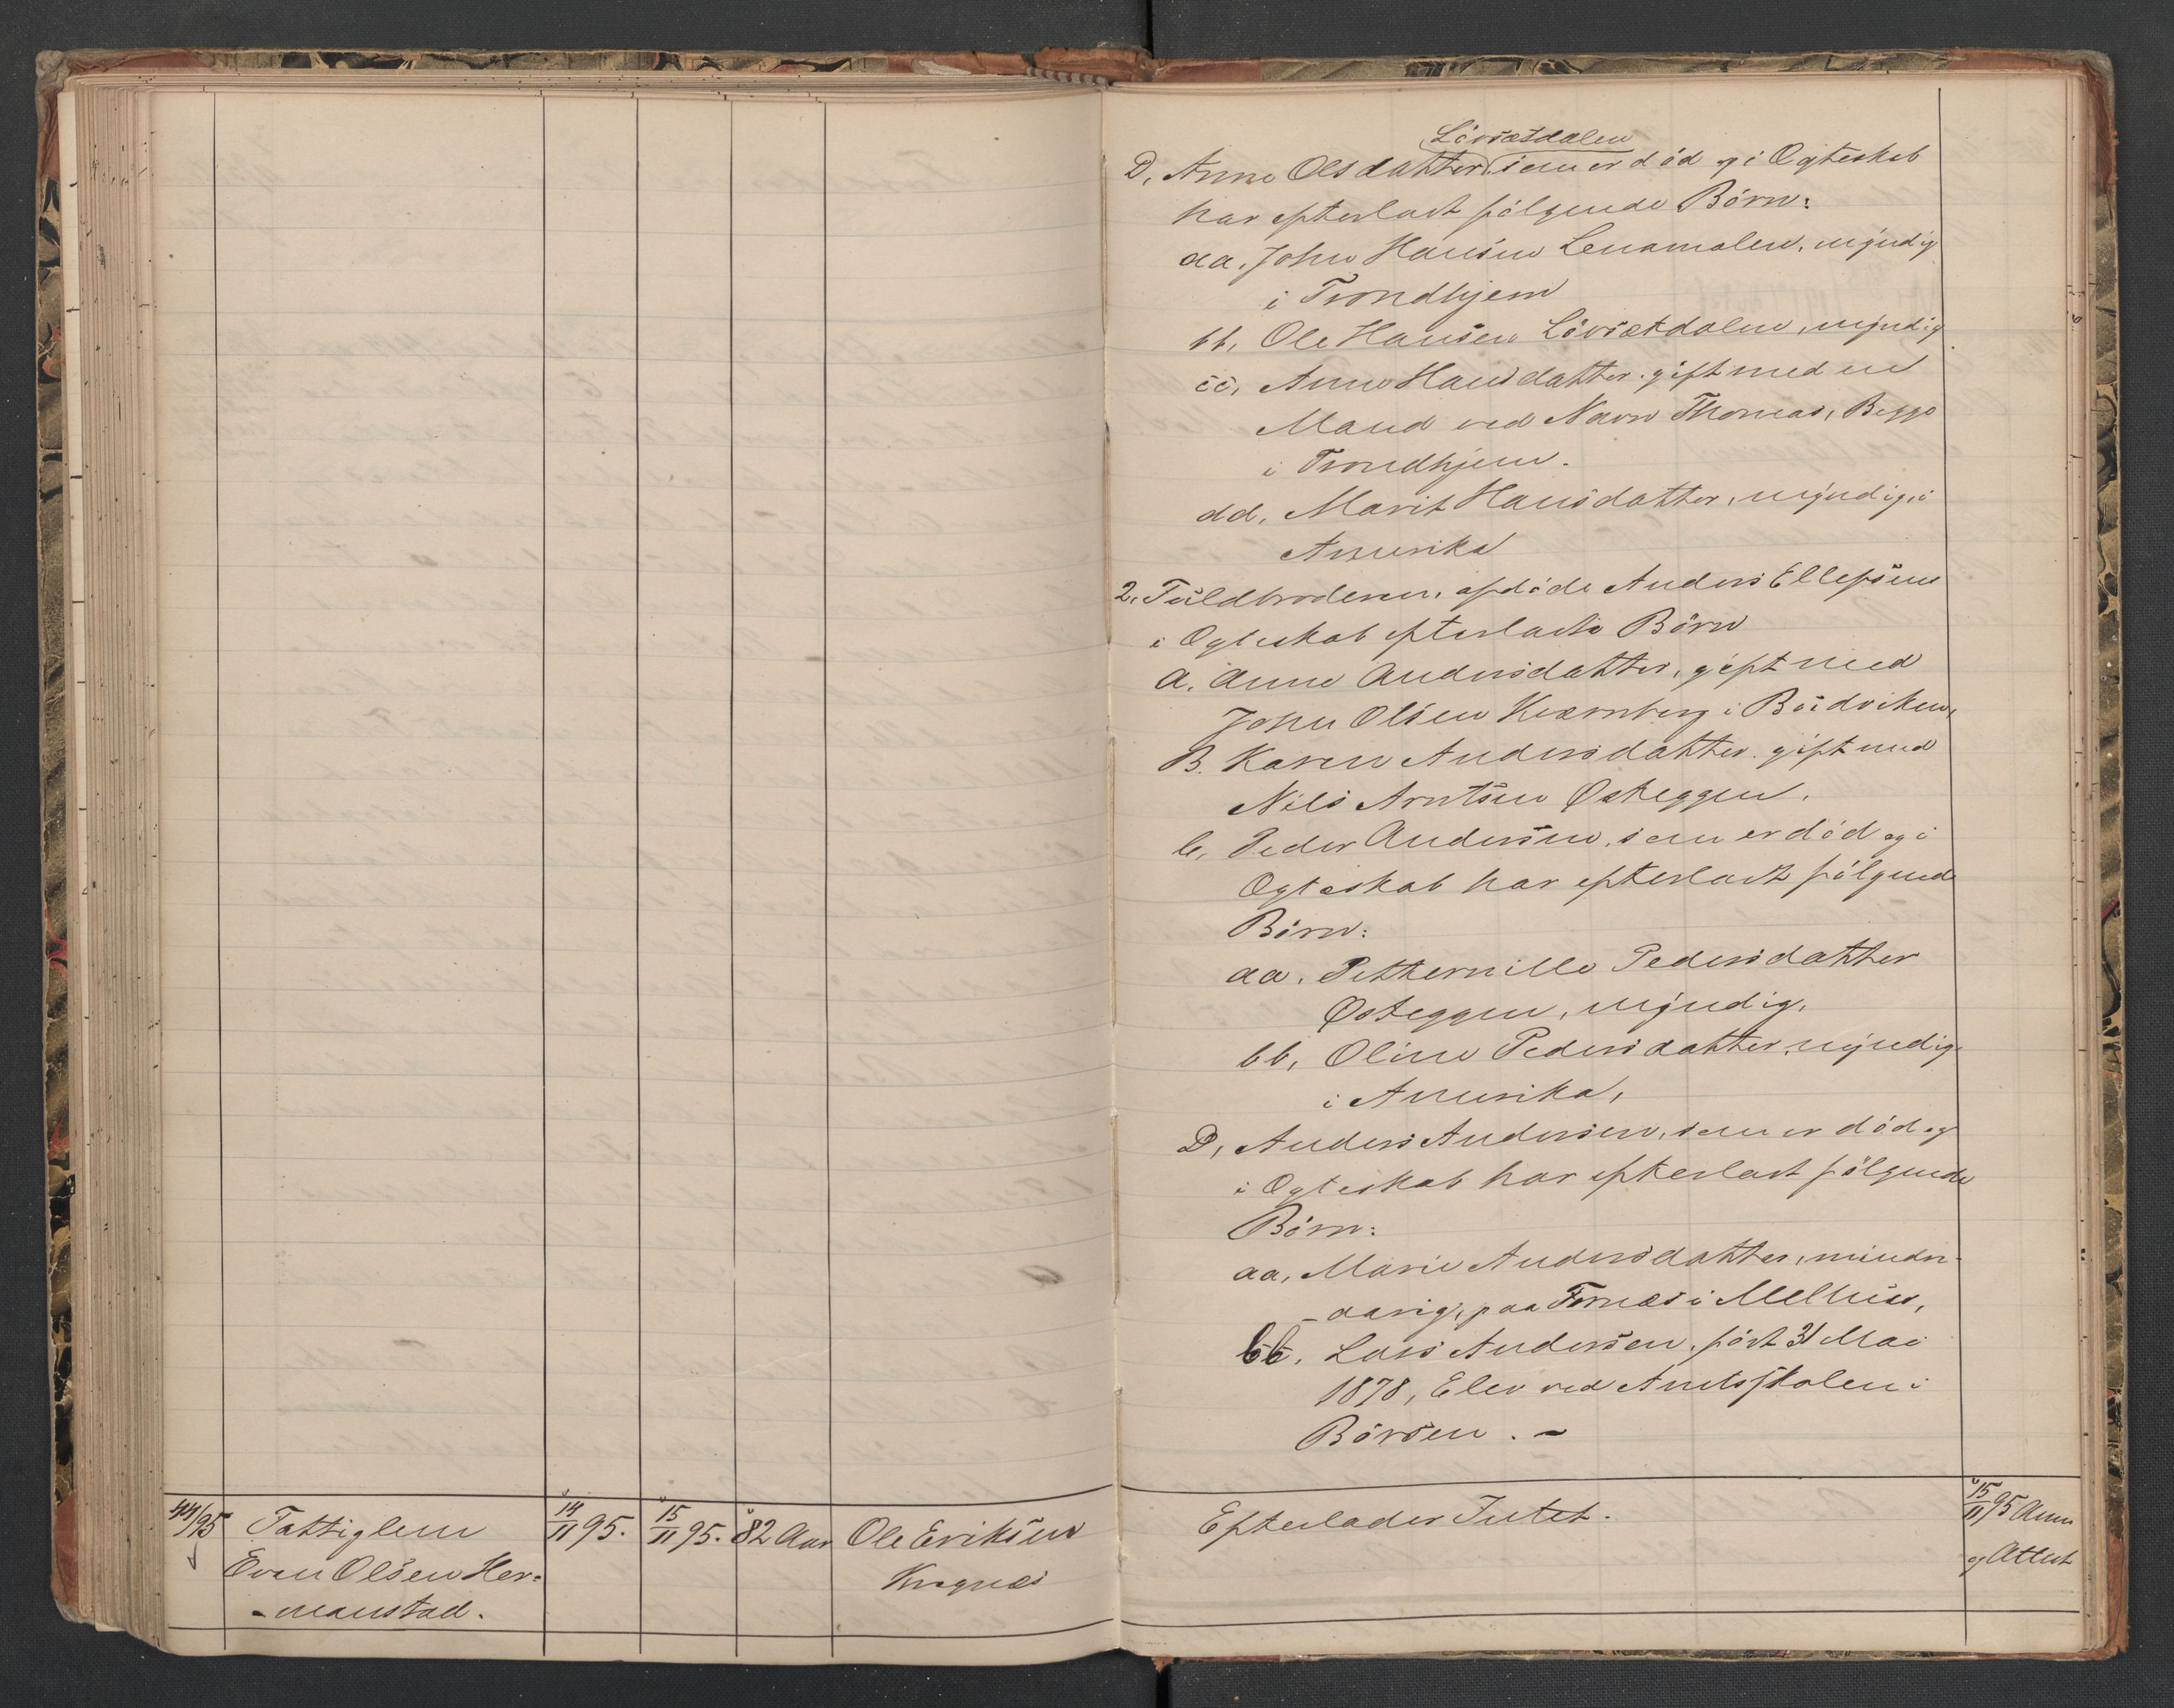 44/95 Fattiglem
Even Olsen Her=
-manstad.
14/11 95.
15/11 95.
82 Aar
Ole Eriksen
Krognes
Lövsætdalen
D, Anne Olsdatter som er död og i Ægteskab
har efterladt fölgende Börn:
aa. John Hansen Lenamalen, myndig
i Trondhjem
bb, Ole Hansen Lövsætdalen, myndig
cc, Anne Hansdatter, gift med en
Mand ved Navn Thomas, Begge
i Trondhjem.
dd, Marit Hansdatter, myndig, i
Amerika
2. Fuldbroderen, afdöde Anders Ellefsens
i Ægteskab efterladte Börn
A. Anne Andersdatter, gift med
John Olsen Kværnberg i Budviken,
B. Karen Andersdatter gift med
Nils Arntsen Østeggen.
C, Peder Andersen, som er död og i
Ægteskab har efterladt fölgende
Börn:
aa. Petternille Pedersdatter
Østeggen, myndig,
bb, Oline Pedersdatter, myndig
i Amerika,
D, Anders Andersen, som er död og
i Ægteskab har efterladt fölgende
Börn:
aa, Marie Andersdatter, mindre-
-aarig, paa Fornæs i Melhus,
bb. Lars Andersen, födt 31 Mai
1878, Elev ved Amtsskolen i
Börsen. -
Efterlader Intet.
15/11 95 Anm
og Attest